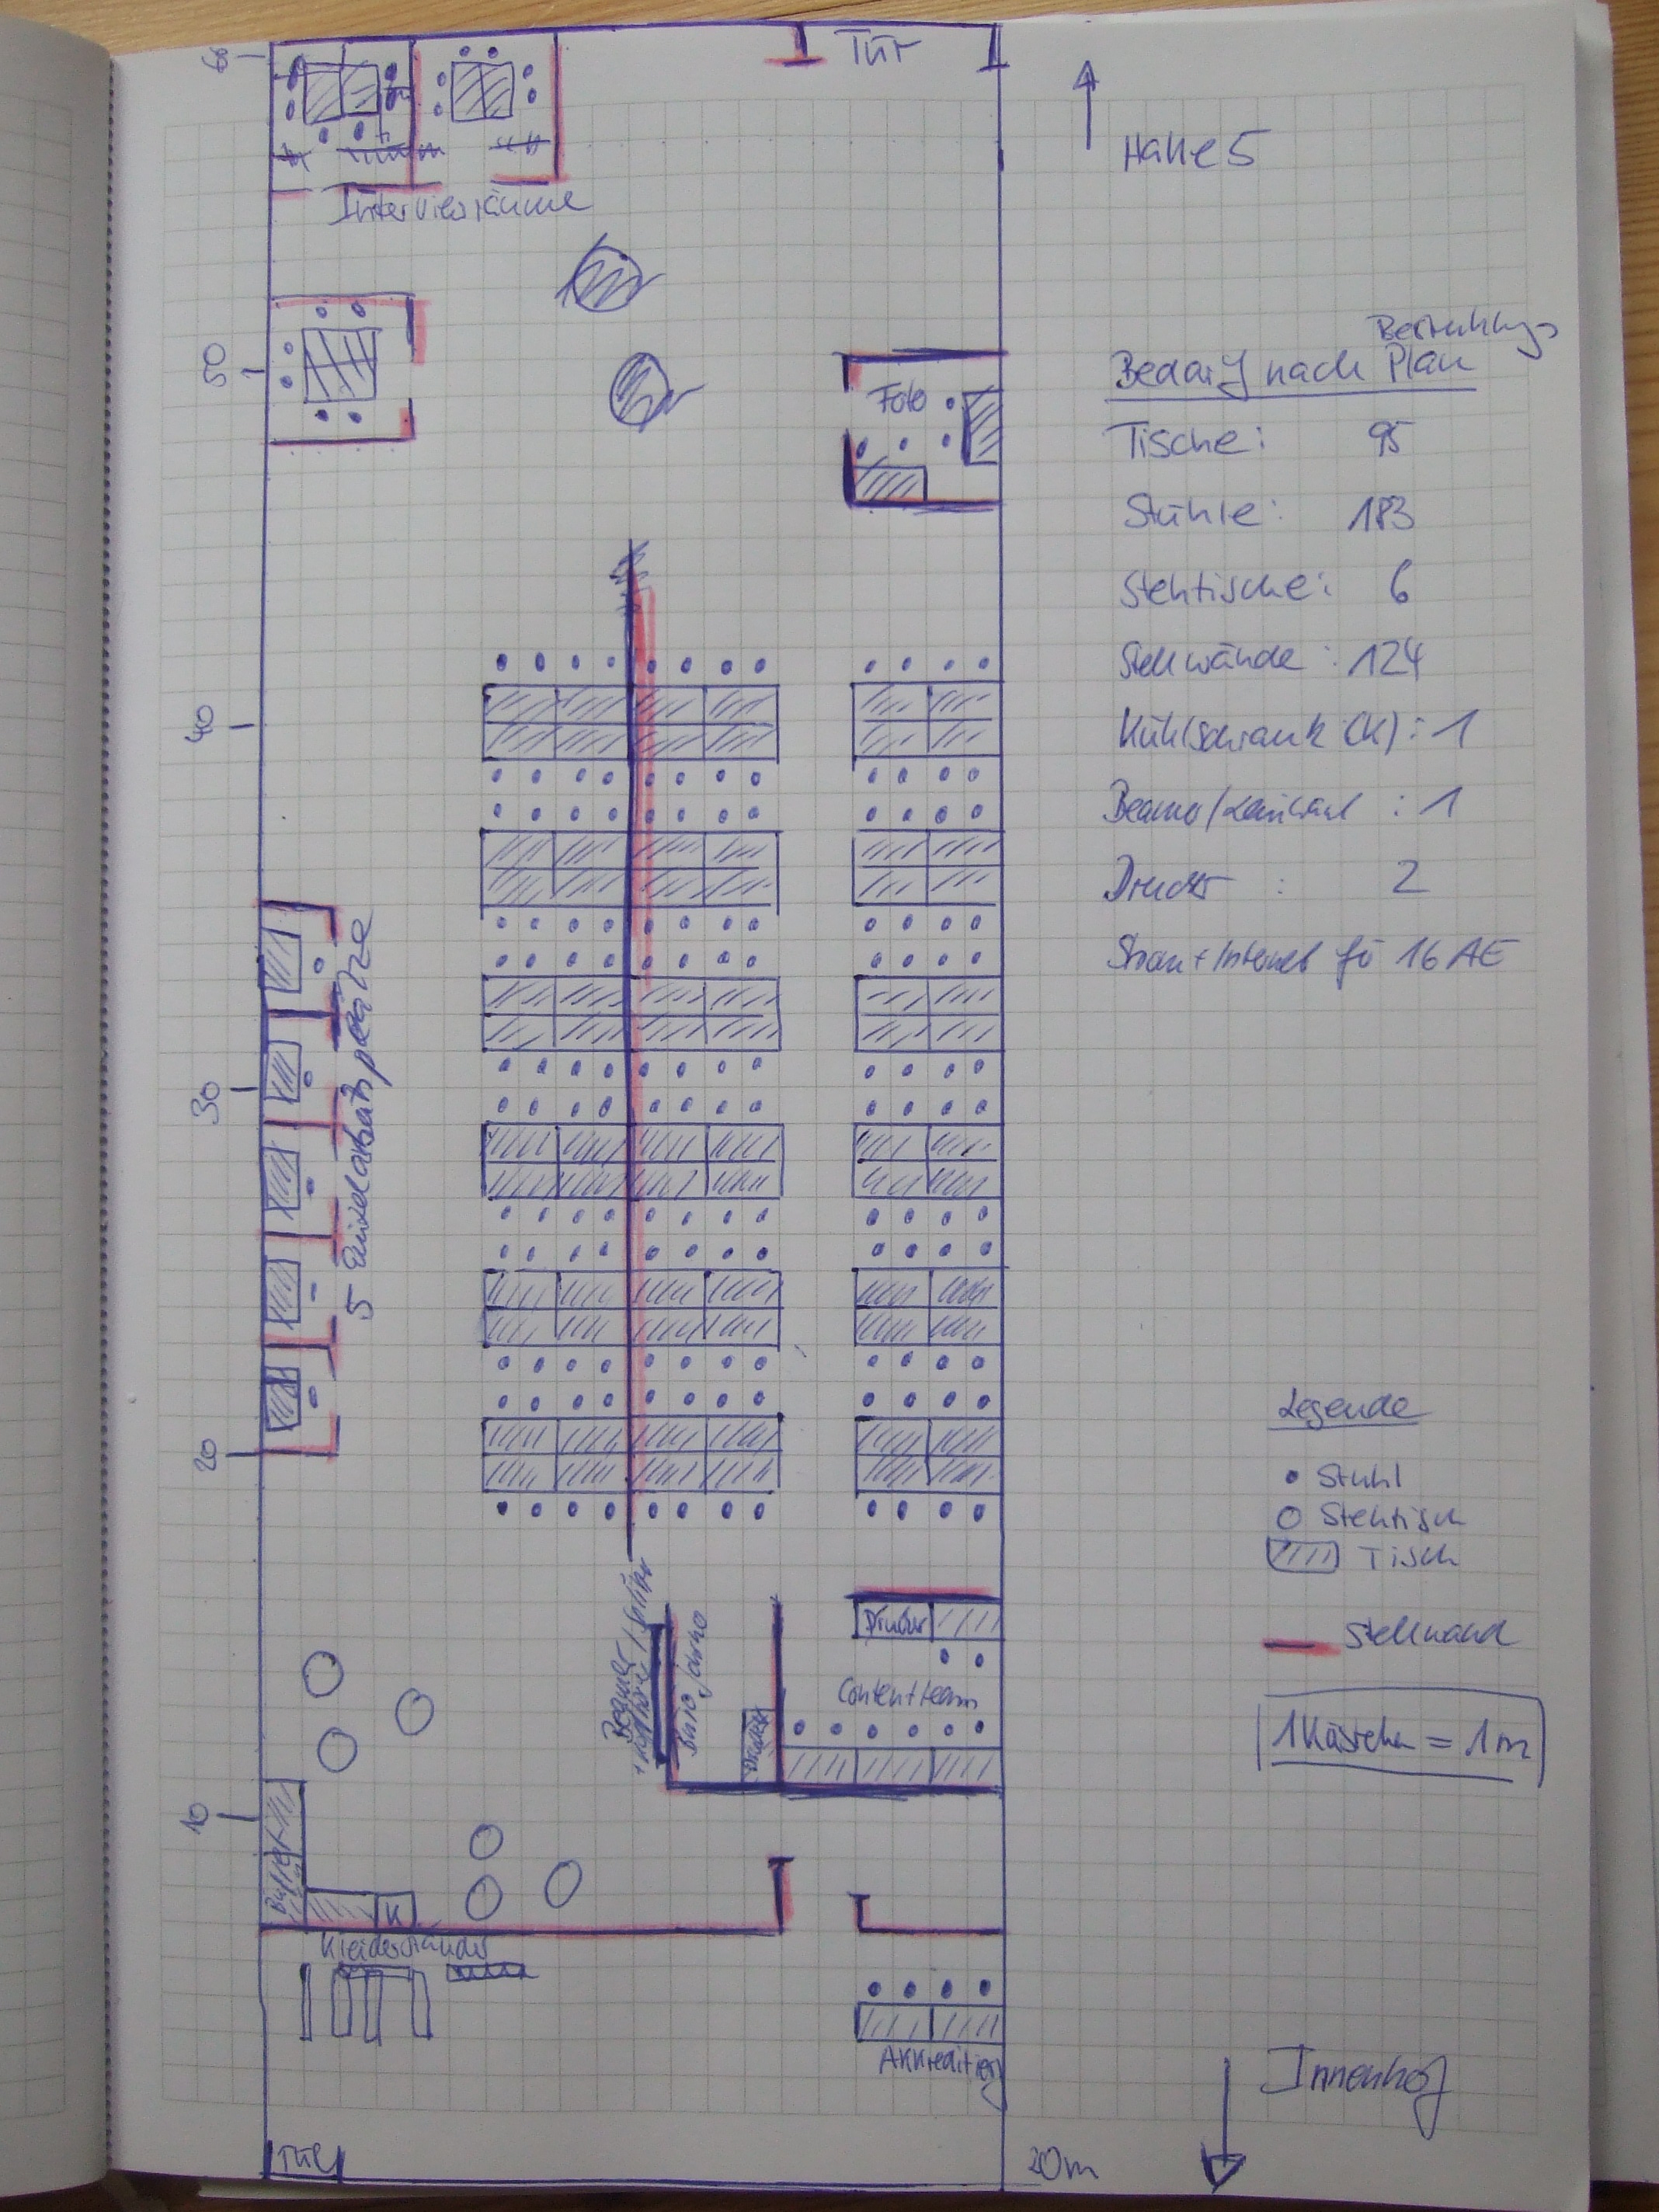 60
Tür
Halle 5
Interviewräume
Bestuhlungs
Bedarf nach Plan
50
Foto
Tische: 95
Stühle: 183
Stehtische: 6
Stellwände: 124
40
Kühlschrank (K): 1
Beamer/Leinwand: 1
Drucker: 2
Strom + Internet für 16 AE
5 Einzelarbeitsplätze
30
20
Legende
Stuhl
Stehtisch
Tisch
Stellwand
Drucker
Contentteam
Drucker
1 Kästchen = 1m
10
Buffet
K
Kleiderständer
Akkreditierg
Innenhof
Tür
20m